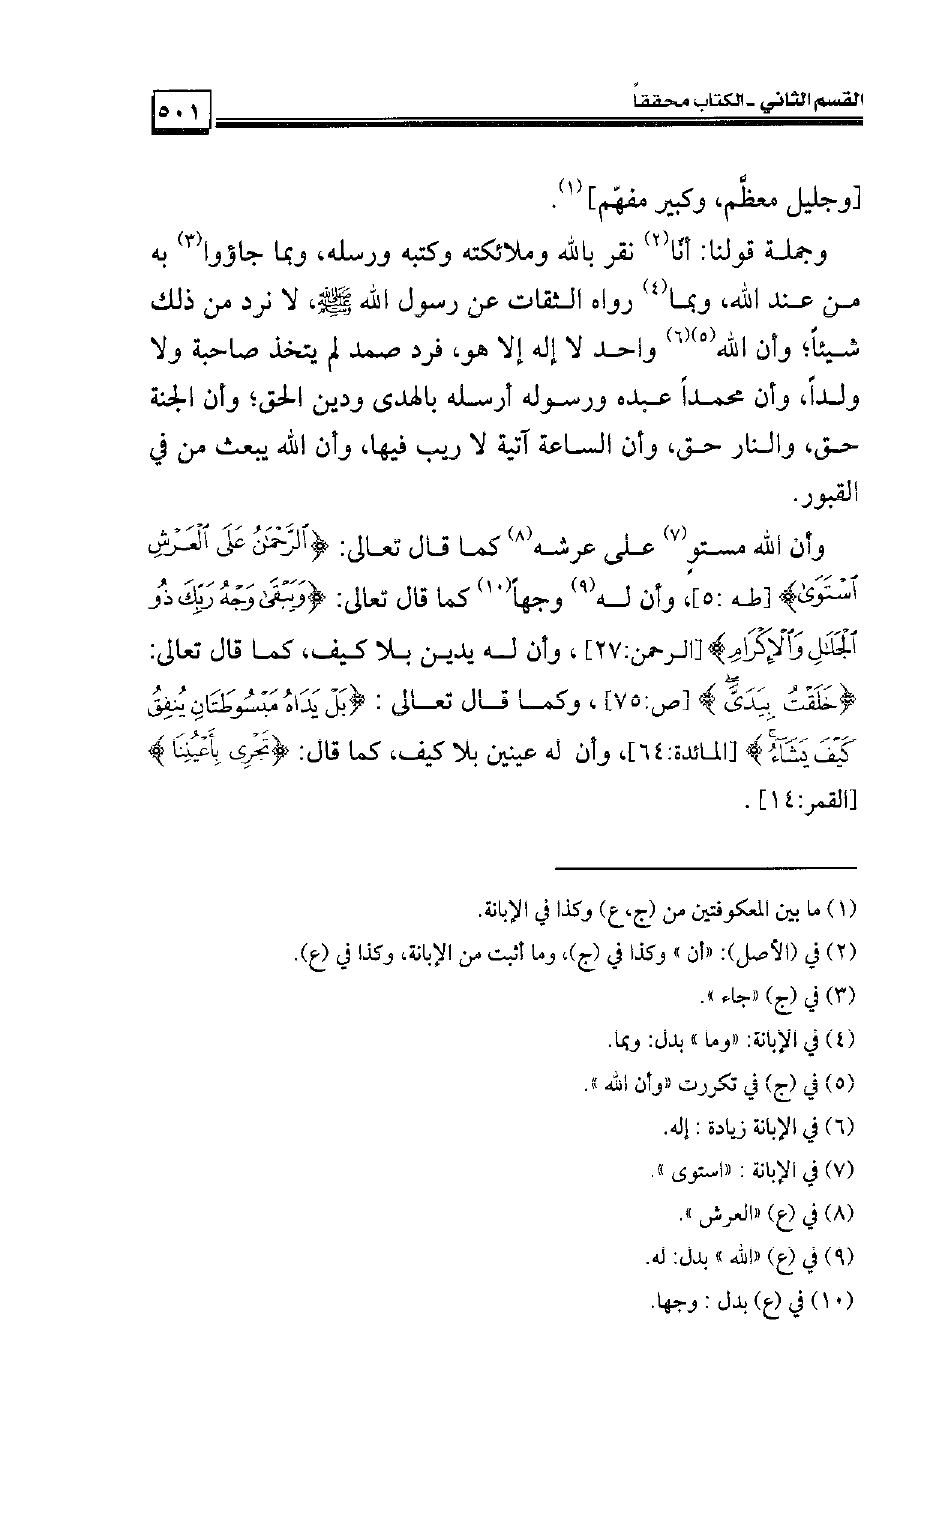 القسم الثاني - الكتاب محققاً
٥٠١
[وجليل معظَّم، وكبير مفهّم](١).
وجملة قولنا: أنّا(٢) نقر بالله وملائكته وكتبه ورسله، وبما جاؤوا(٣) به
من عند الله، وبما(٤) رواه الثقات عن رسول الله ﷺ، لا نرد من ذلك
شيئاً؛ وأن الله(٥)(٦) واحد لا إله إلا هو، فرد صمد لم يتخذ صاحبة ولا
ولداً، وأن محمداً عبده ورسوله أرسله بالهدى ودين الحق؛ وأن الجنة
حق، والنار حق، وأن الساعة آتية لا ريب فيها، وأن الله يبعث من في
القبور.
وأن الله مستوٍ(٧) على عرشه(٨) كما قال تعالى: ﴿ٱلرَّحْمَٰنُ عَلَى ٱلْعَرْشِ
ٱسْتَوَىٰ﴾ [طه :٥]، وأن له(٩) وجهاً(١٠) كما قال تعالى: ﴿وَيَبْقَىٰ وَجْهُ رَبِّكَ ذُو
ٱلْجَلَٰلِ وَٱلْإِكْرَامِ﴾ [الرحمن:٢٧] ، وأن له يدين بلا كيف، كما قال تعالى:
﴿خَلَقْتُ بِيَدَىَّ ﴾ [ص:٧٥] ، وكما قال تعالى : ﴿بَلْ يَدَاهُ مَبْسُوطَتَانِ يُنفِقُ
كَيْفَ يَشَآءُ﴾ [المائدة:٦٤]، وأن له عينين بلا كيف، كما قال: ﴿تَجْرِى بِأَعْيُنِنَا ﴾
[القمر:١٤] .
(١) ما بين المعكوفتين من (ج، ع) وكذا في الإبانة.
(٢) في (الأصل): «أن » وكذا في (ج)، وما أثبت من الإبانة، وكذا في (ع).
(٣) في (ج) «جاء ».
(٤) في الإبانة: «وما » بدل: وبما.
(٥) في (ج) في تكررت «وأن الله ».
(٦) في الإبانة زيادة : إله.
(٧) في الإبانة : «استوى ».
(٨) في (ع) «العرش ».
(٩) في (ع) «الله » بدل: له.
(١٠) في (ع) بدل : وجها.